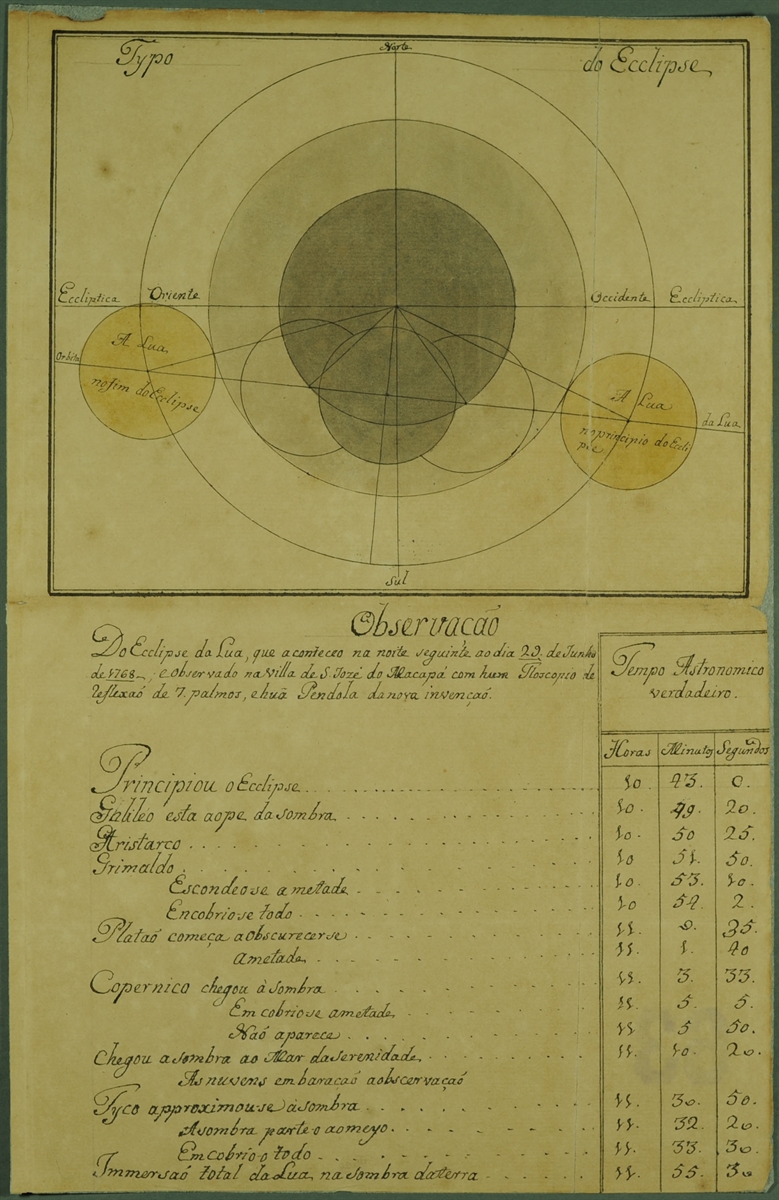 Norte
Typo do Ecclipse
Eccliptica Oriente Occidente Eccliptica
Orbita
A Lua
no fim do Ecclipse
A Lua
no principio do Eccli
pse
da Lua
Sul
Observação
Do Ecclipse da Lua, que aconteceo na noite seguinte ao dia 29. de Junho
de 1768, e observado na Villa de S. Jozé do Macapá com hum Tloscopio de
reflexaõ de 7. palmos, e huã Pendola da nova invençaõ.
Tempo Astronomico
verdadeiro.
Horas Minutos Segundos
Principiou o Ecclipse 10 43. 0.
Galileo esta ao pe da sombra 10. 49. 20.
Aristarco 10. 50 25.
Grimaldo 10 51. 50.
Escondeo-se ametade 10. 53. 10.
Encobrio-se todo 10 54. 2.
Plataõ começa a obscurecerse 11. 0. 35.
Ametade 11. 1. 40
Copernico chegou à sombra 11. 3. 33.
Em cobriose ametade 11. 5. 5.
Naõ aparece 11. 5 50.
Chegou a sombra ao Mar da serenidade 11. 10. 20.
As nuvens embaraçaõ aobscervaçaõ
Tyco approximou-se à sombra 11. 30. 50.
A sombra parte-o ao meyo. 11. 32. 20.
Emcobrio-o todo 11. 33. 30.
Immersaõ total da Lua na sombra da terra 11. 55. 30